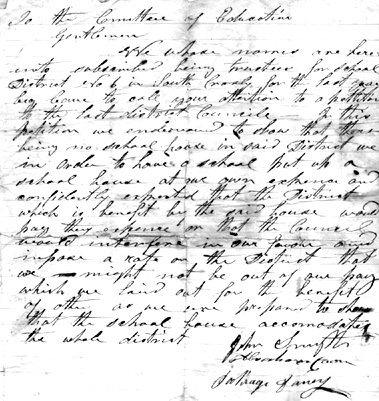 To the Comittee of Education
Gentlemen
We whose names are here
unto subscribed being trustees for school
District No 6 in South Crosby for the last year
beg leave to call your attention to a petition
to the last District Council. In this
petition we endeavoured to show that there
being no school house in said District we
in order to have a school put up a
school house at our own expence and
confidently expected that the District
which is benefit by the said house would
pay the expence or that the Council
would interfere in our favour and
impose a rate on the District that
we might not be out of our pay
which we laid out for the benefit
of others as we are prepared to show
that the school house accomodates
the whole district
John Smyth
Abraham